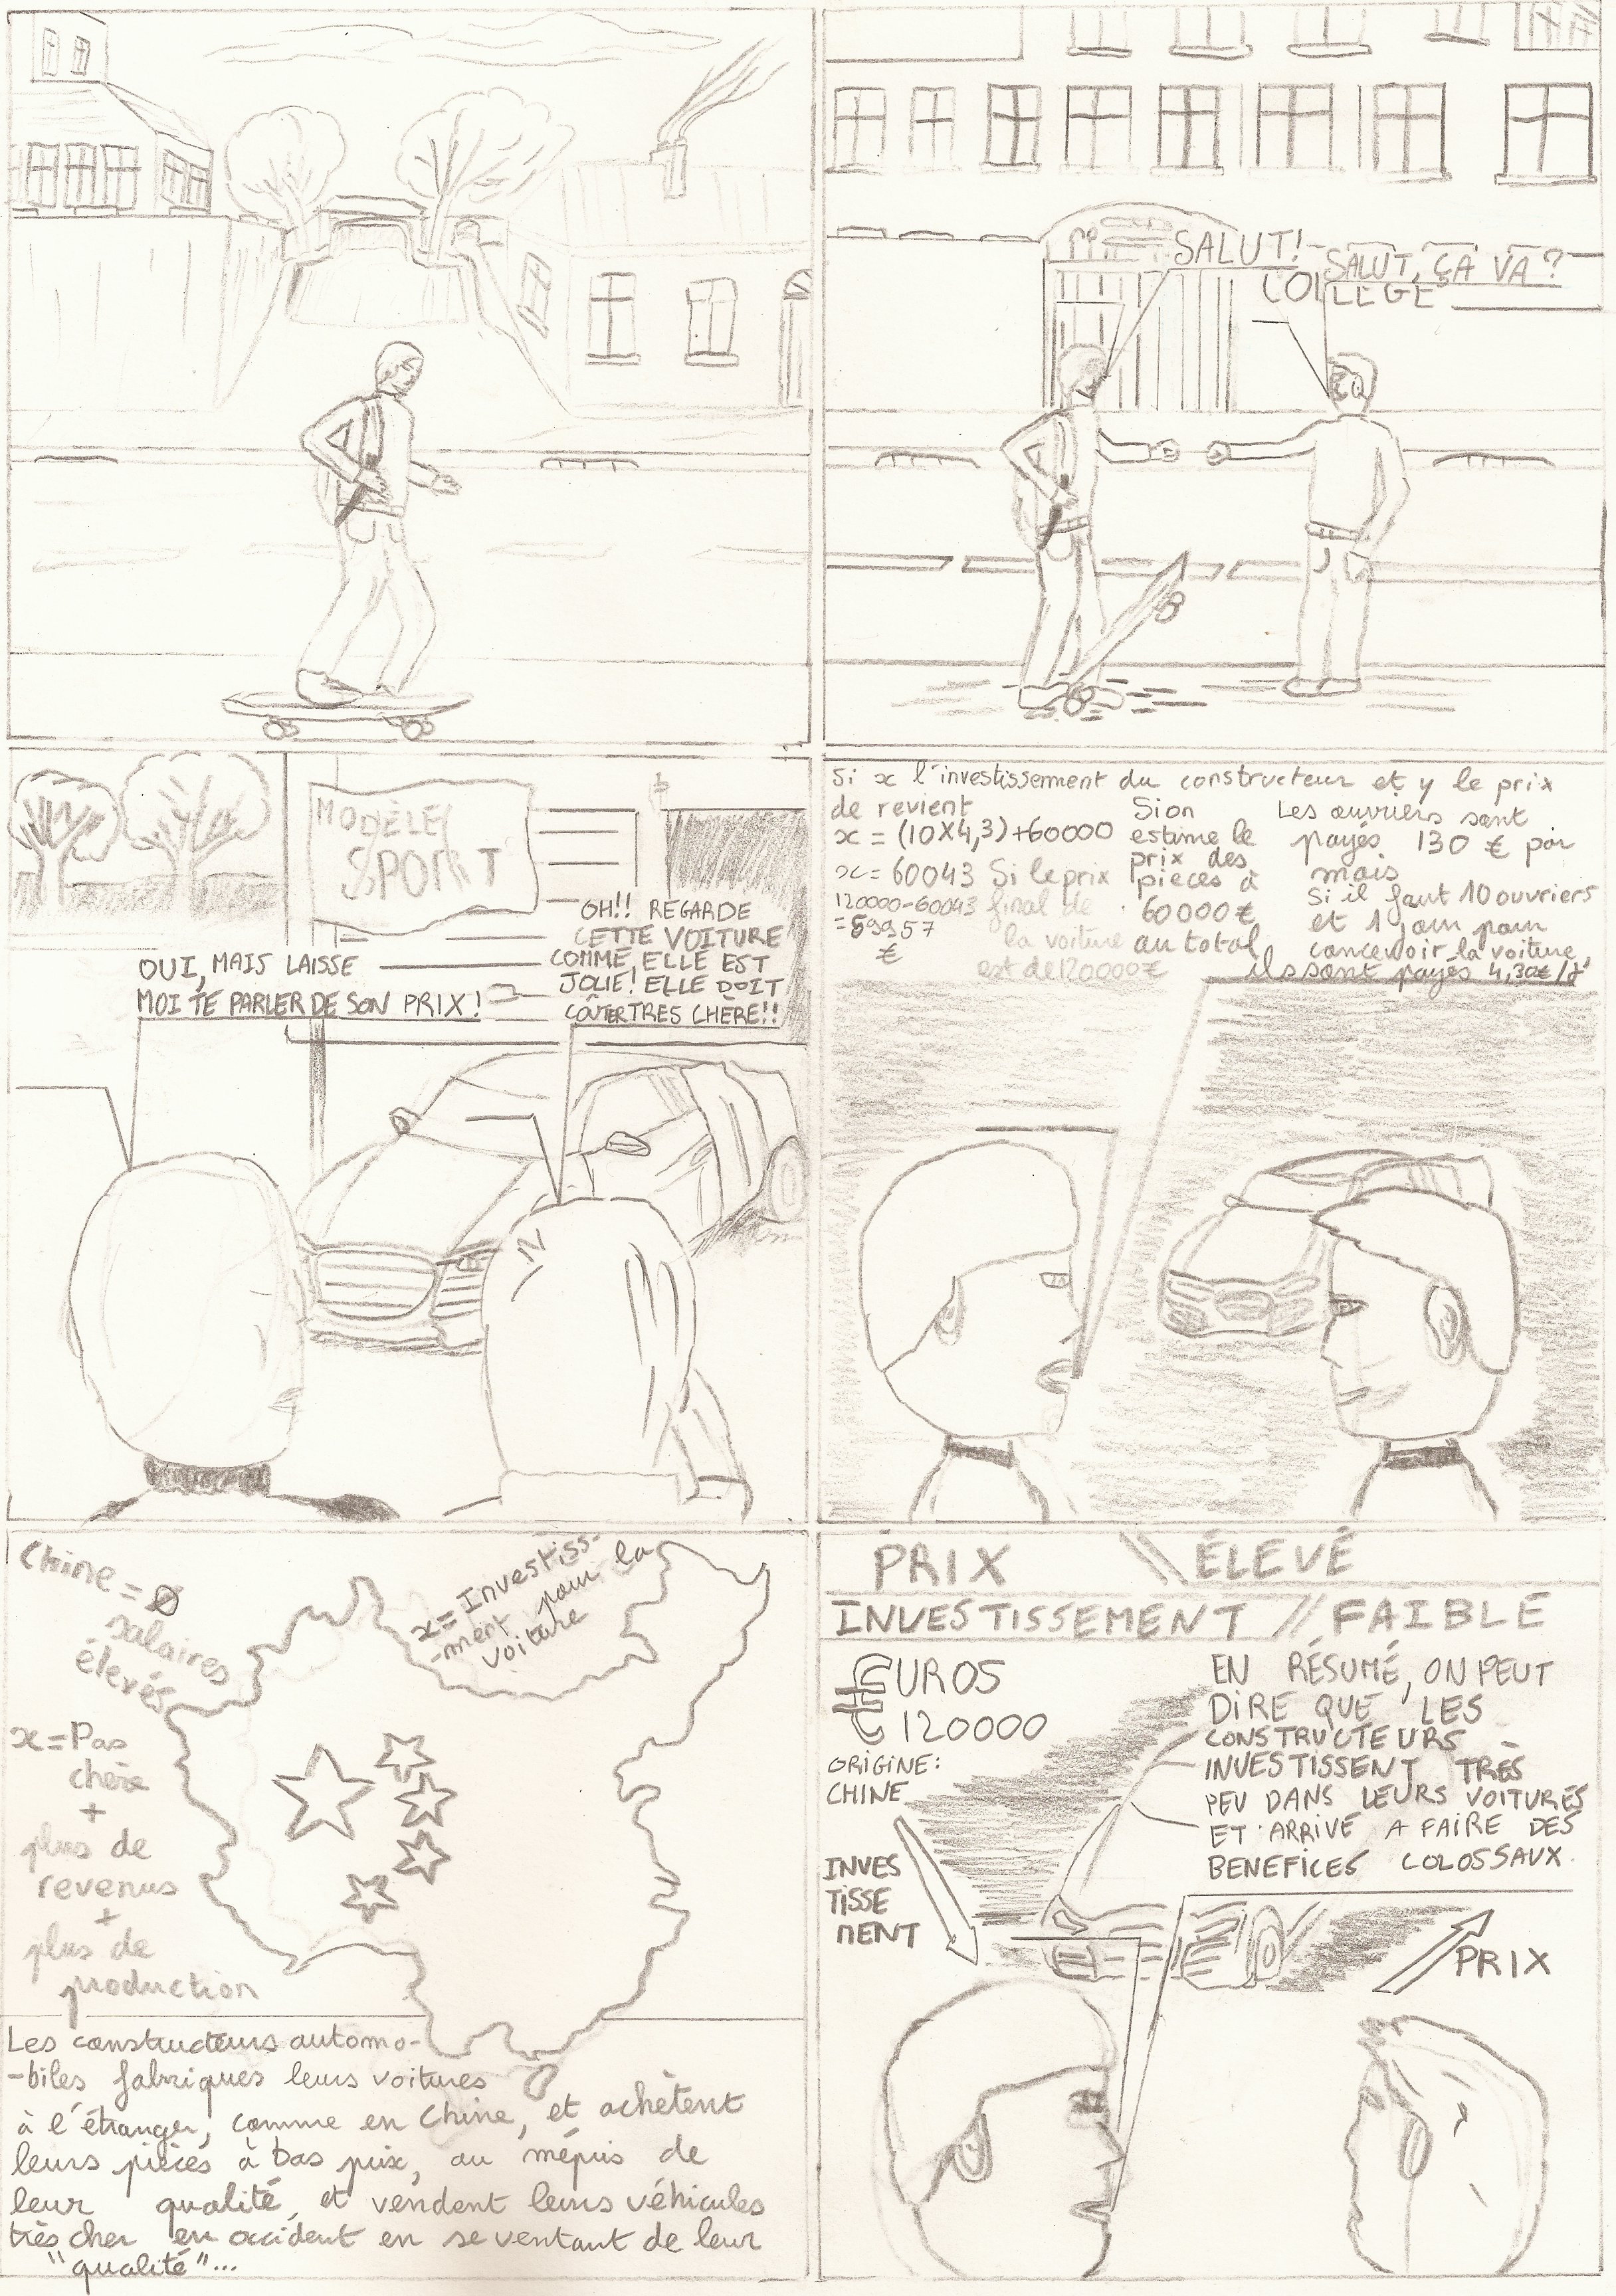 SALUT!
SALUT, ÇA VA ?
COLLEGE
MODÈLE
SPORT
OH!! REGARDE
CETTE VOITURE
COMME ELLE EST
JOLIE! ELLE DOIT
COÛTER TRES CHÈRE!!
OUI, MAIS LAISSE
MOI TE PARLER DE SON PRIX!
Si x l'investissement du constructeur et y le prix
de revient
x = (10X4,3)+60000
x = 60043
120000-60043
=59957
€
Si le prix
final de
la voiture
est de 120000€
Si on
estime le
prix des
pièces à
60000€
au total
Les ouvriers sont
payés 130 € par
mois
Si il faut 10 ouvriers
et 1 jour pour
concevoir la voiture,
ils sont payés 4,30€/j
Chine = Ø
salaires
élevés
x = Investiss-
-ment pour la
voiture
x = Pas
chère
+
plus de
revenus
+
plus de
production
Les constructeurs automo-
-biles fabriques leurs voitures
à l'étranger, comme en Chine, et achètent
leurs pièces à bas prix, au mépris de
leur qualité, et vendent leurs véhicules
très cher en occident en se ventant de leur
"qualité"...
PRIX \\ ÉLEVÉ
INVESTISSEMENT // FAIBLE
EUROS
€ 120000
ORIGINE:
CHINE
INVES
TISSE
MENT
EN RÉSUMÉ, ON PEUT
DIRE QUE LES
CONSTRUCTEURS
INVESTISSENT TRÈS
PEU DANS LEURS VOITURES
ET ARRIVE A FAIRE DES
BENEFICES COLOSSAUX.
PRIX